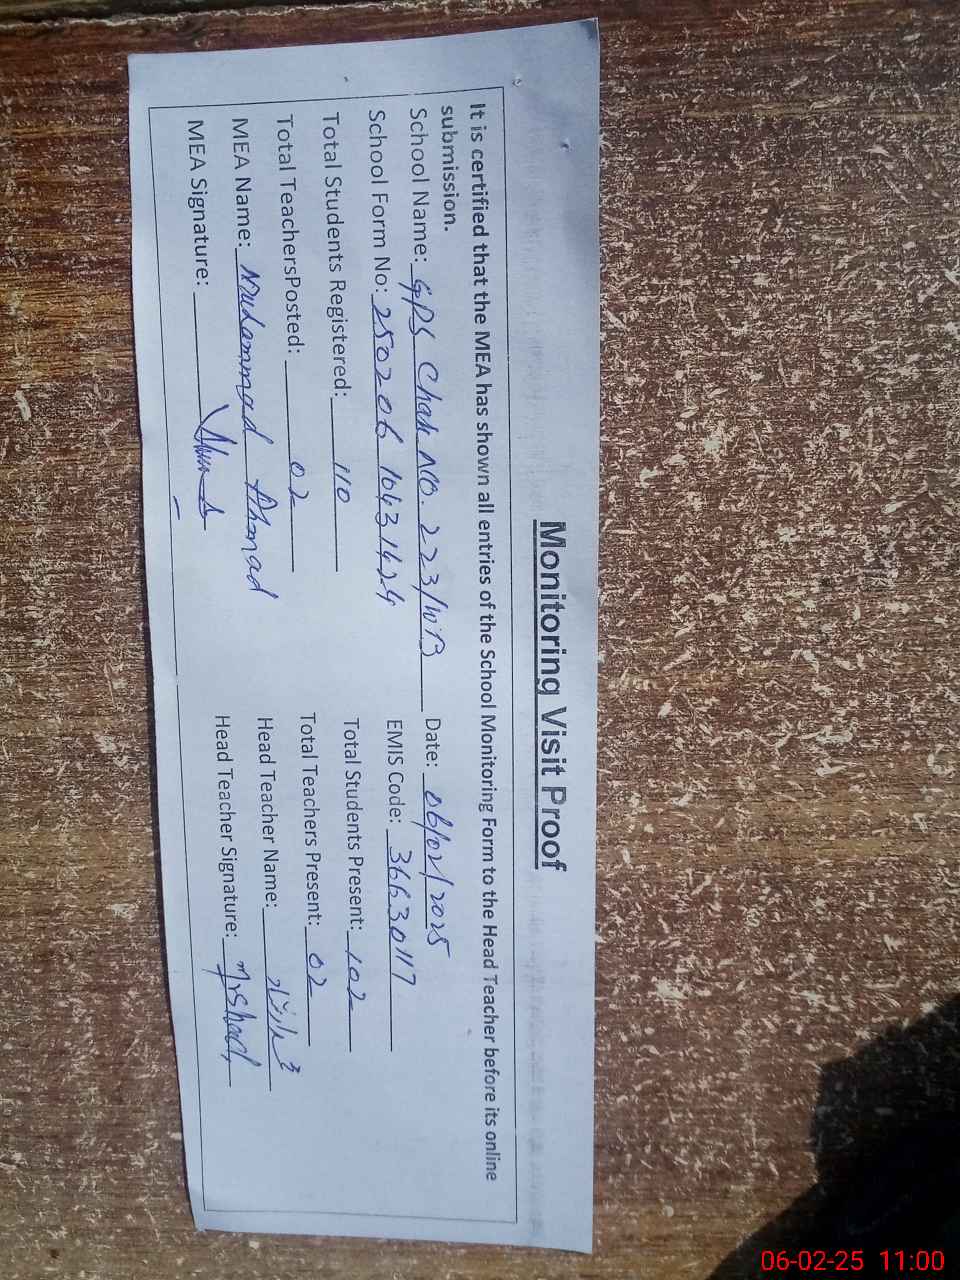 Monitoring Visit Proof
It is certified that the MEA has shown all entries of the School Monitoring Form to the Head Teacher before its online
submission.
School Name: GPS Chak No. 223/10.B Date: 06/02/2025
School Form No: 250206 10431424 EMIS Code: 36630117
Total Students Registered: 110 Total Students Present: 102
Total TeachersPosted: 02 Total Teachers Present: 02
MEA Name: Muhammad Ahmad Head Teacher Name:
MEA Signature: Head Teacher Signature: M.Rshad
06-02-25 11:00